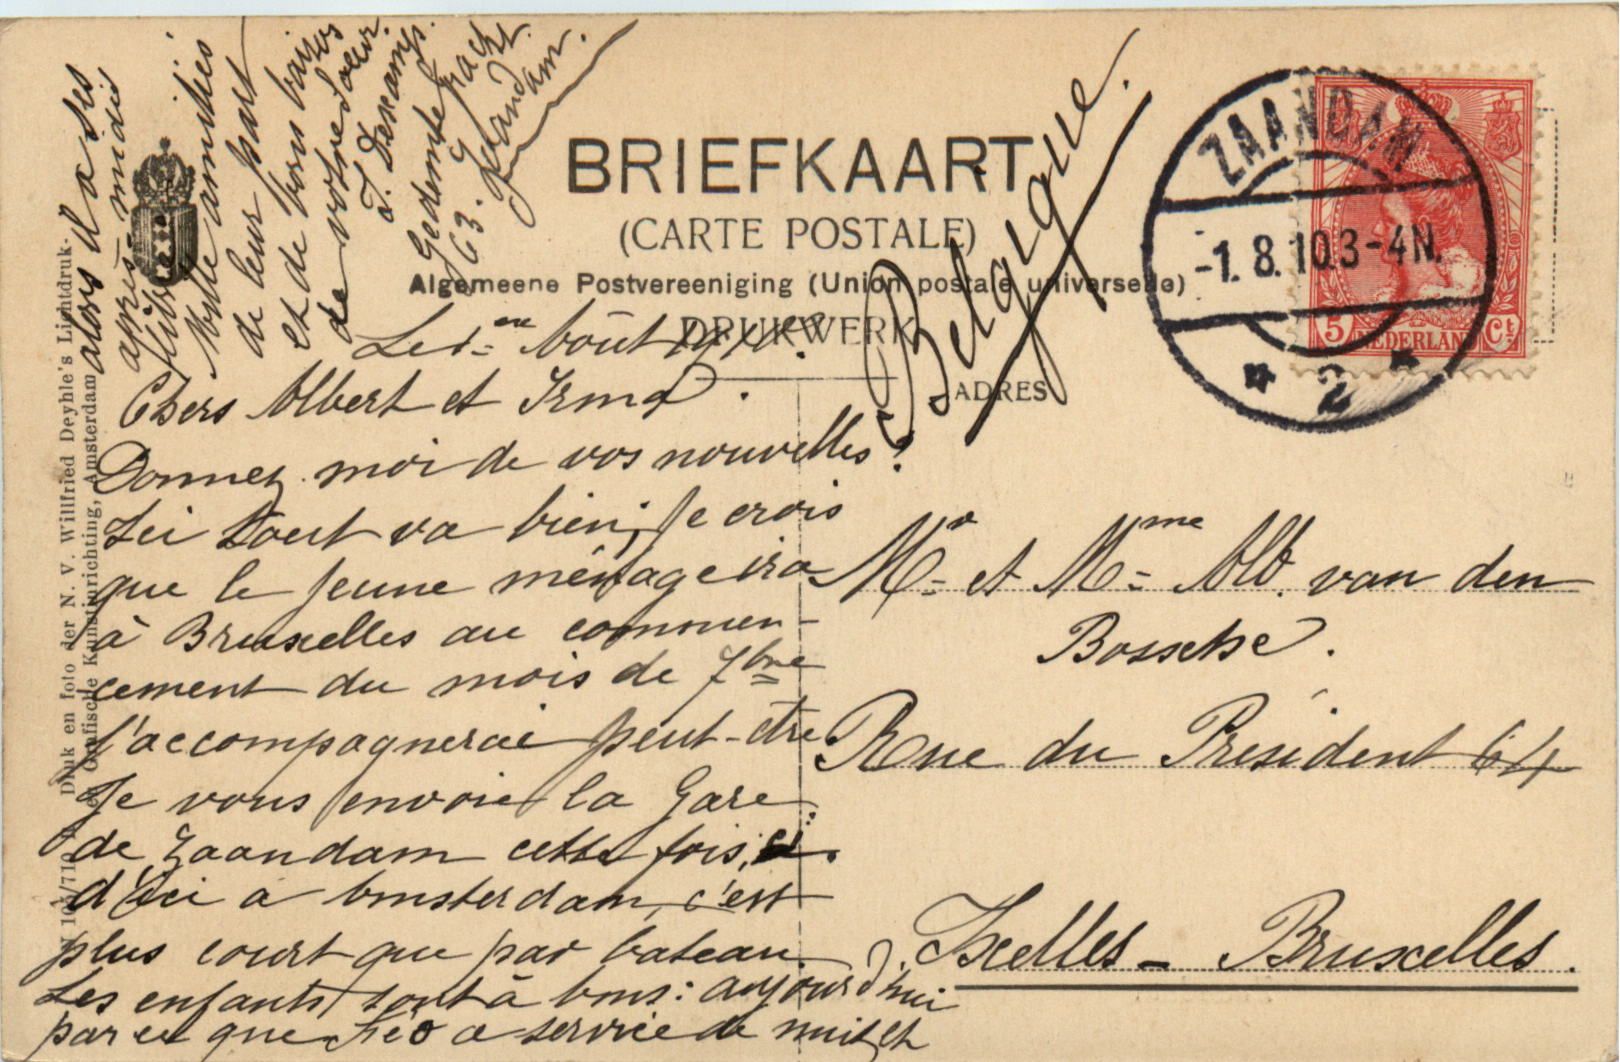 BRIEFKAART
(CARTE POSTALE)
Algemeene Postvereeniging (Union postale universelle)
DRUKWERK
ADRES
ZAANDAM
-1. 8. 10 3-4N.
2
5 NEDERLAND Ct
Belgique.
Le 1ere Août 1910.
Chers Albert et Irma.
Donnez moi de vos nouvelles!
Ici tout va bien, je crois
que le jeune ménage ira
à Bruxelles au commen-
cement du mois de 7bre
j'accompagnerai peut-être.
Je vous envoie la gare
de Zaandam cette fois,
d'ici à Amsterdam, c'est
plus court que par bateau.
Les enfants sont à Ams: aujourd'hui
parce que Léo a service de nuit et
alors il a ses
après-midis
libres.
Mille amitiés
de leur part
et de bons baisers
de votre soeur.
J. Descamps.
Gedempte Gracht
63. Zaandam.
Mr et Mme Alb. van den
Bossche.
Rue du Président 64
Ixelles - Bruxelles.
Druk en foto der N. V. Willfried Deyhle's Lichtdruk-
Grafische Kunstinrichting, Amsterdam